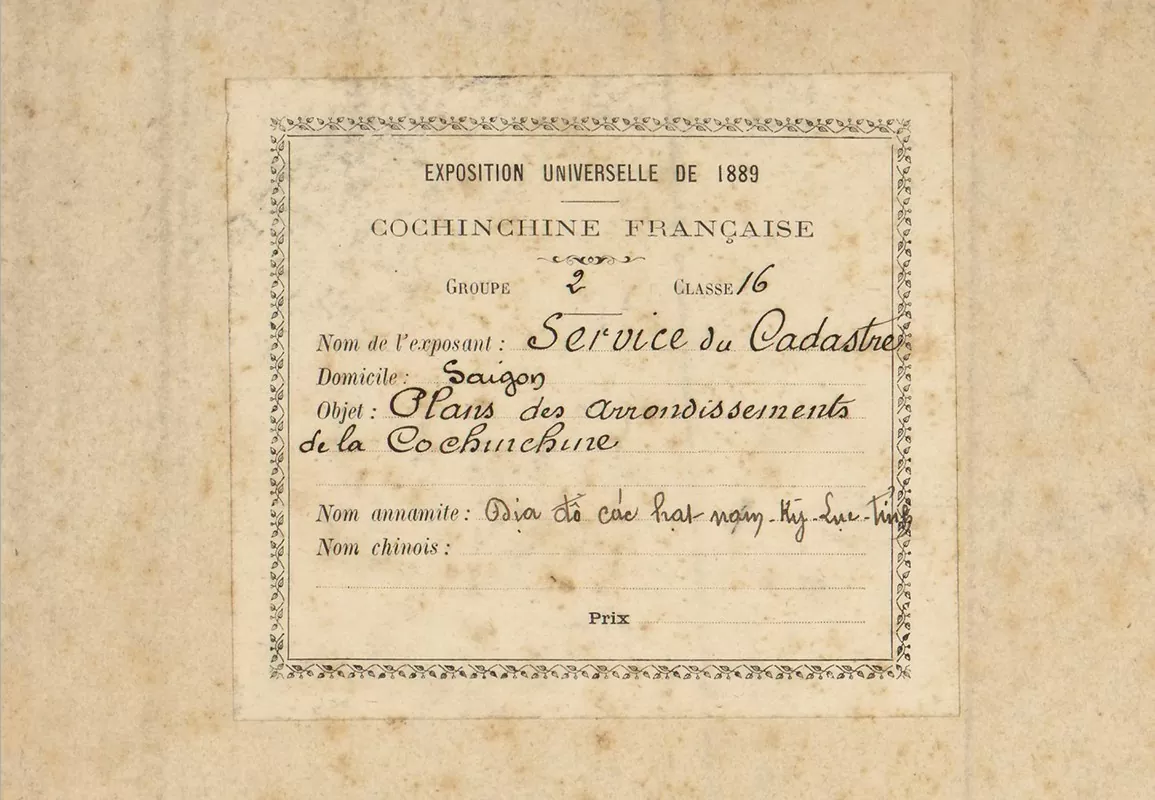 EXPOSITION UNIVERSELLE DE 1889
COCHINCHINE FRANÇAISE
GROUPE 2 CLASSE 16
Nom de l'exposant : Service du Cadastre
Domicile : Saigon
Objet : Plans des arrondissements
de la Cochinchine
Nom annamite : Địa đồ các hạt nam-Kỳ-Lục-tỉnh
Nom chinois :
Prix